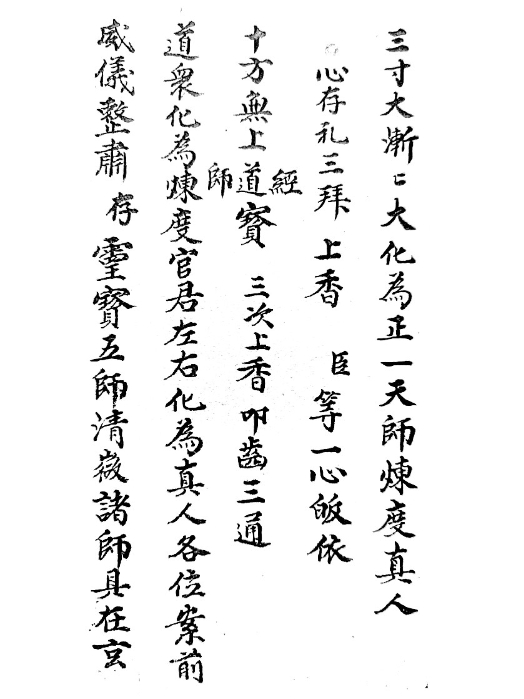 三寸大漸〻大化為正一天師煉度真人
心存礼三拜 上香 臣等一心皈依
十方無上經道師寳 三次上香叩齒三通
道衆化為煉度官君左右化為真人各位案前
威儀整肅 存靈寳五師清微諸師具在玄